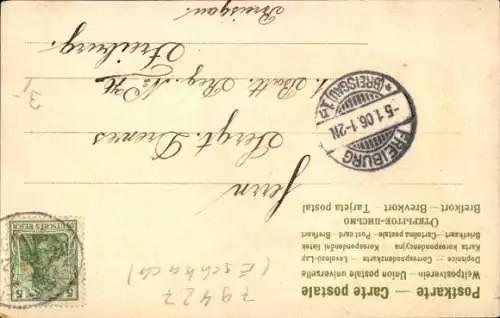 Postkarte — Carte postale
Weltpostverein — Union postale universelle
Dopisnice — Correspondenzkarte — Levelező-Lap
Karta korespondencyjna — Korespondenční lístek
Briefkaart — Cartolina postale — Post card — Brefkort
Открытое письмо
Brefkort — Brevkort — Tarjeta postal
79427
(Eschbach)
Herrn
Sergt. Drewes
Batt. Reg. No 76
Freiburg.
Breisgau.
FREIBURG
-5.1.06.1-2N
*(BREISGAU)1.
DEUTSCHES REICH
5 5
3-